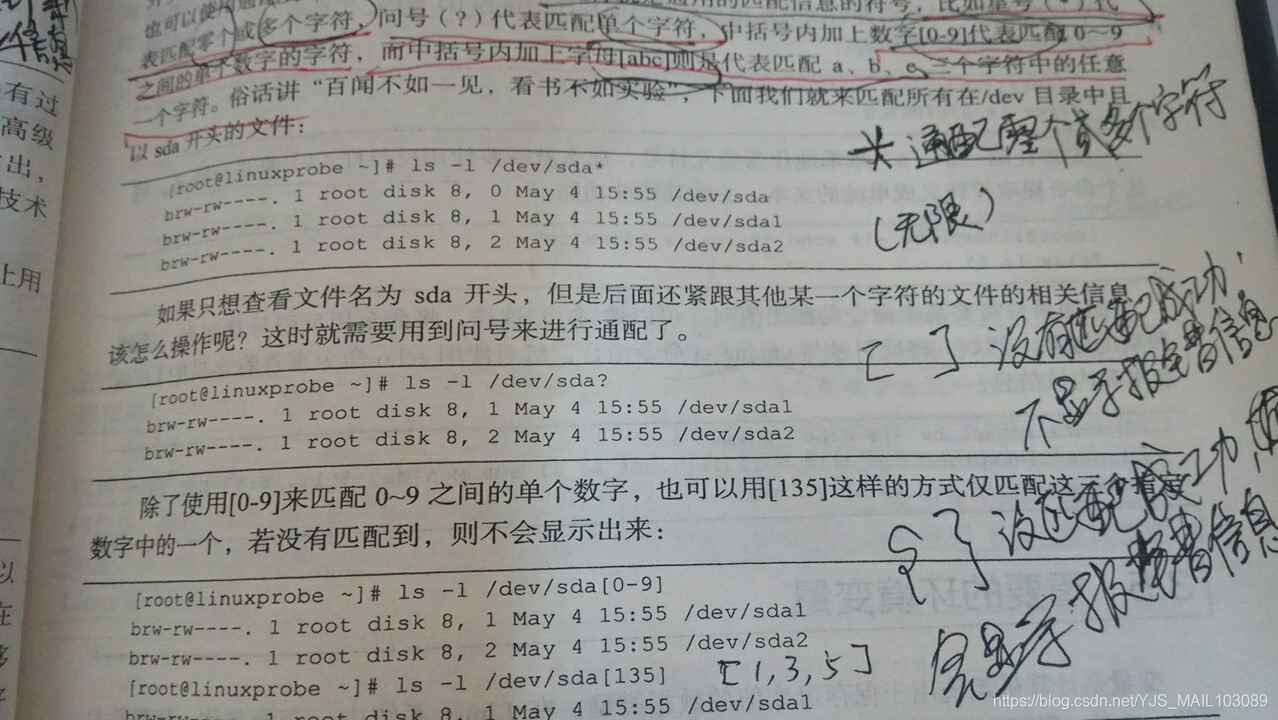 也可以使用通
的匹配信息的符号，比如星号（*）代
表匹配零个或多个字符，问号（?）代表匹配单个字符，中括号内加上数字[0-9]代表匹配 0~9
之间的单个数字的字符，而中括号内加上字母[abc]则是代表匹配 a、b、c 三个字符中的任意
一个字符。俗话讲“百闻不如一见，看书不如实验”，下面我们就来匹配所有在/dev 目录中且
以 sda 开头的文件：
[root@linuxprobe ~]# ls -l /dev/sda*
brw-rw----. 1 root disk 8, 0 May 4 15:55 /dev/sda
brw-rw----. 1 root disk 8, 1 May 4 15:55 /dev/sda1
brw-rw----. 1 root disk 8, 2 May 4 15:55 /dev/sda2
如果只想查看文件名为 sda 开头，但是后面还紧跟其他某一个字符的文件的相关信息
该怎么操作呢？这时就需要用到问号来进行通配了。
[root@linuxprobe ~]# ls -l /dev/sda?
brw-rw----. 1 root disk 8, 1 May 4 15:55 /dev/sda1
brw-rw----. 1 root disk 8, 2 May 4 15:55 /dev/sda2
除了使用[0-9]来匹配 0~9 之间的单个数字，也可以用[135]这样的方式仅匹配这三个指定
数字中的一个，若没有匹配到，则不会显示出来：
[root@linuxprobe ~]# ls -l /dev/sda[0-9]
brw-rw----. 1 root disk 8, 1 May 4 15:55 /dev/sda1
brw-rw----. 1 root disk 8, 2 May 4 15:55 /dev/sda2
[root@linuxprobe ~]# ls -l /dev/sda[135]
brw-rw----. 1 root disk 8, 1 May 4 15:55 /dev/sda1
* 通配零个或多个字符
（无限）
[ ] 没有匹配成功，
不显示报警信息
{ } 没匹配成功，
会显示报警信息
[1,3,5]
有过
高级
出，
技术
上用
以
在
https://blog.csdn.net/YJS_MAIL103089